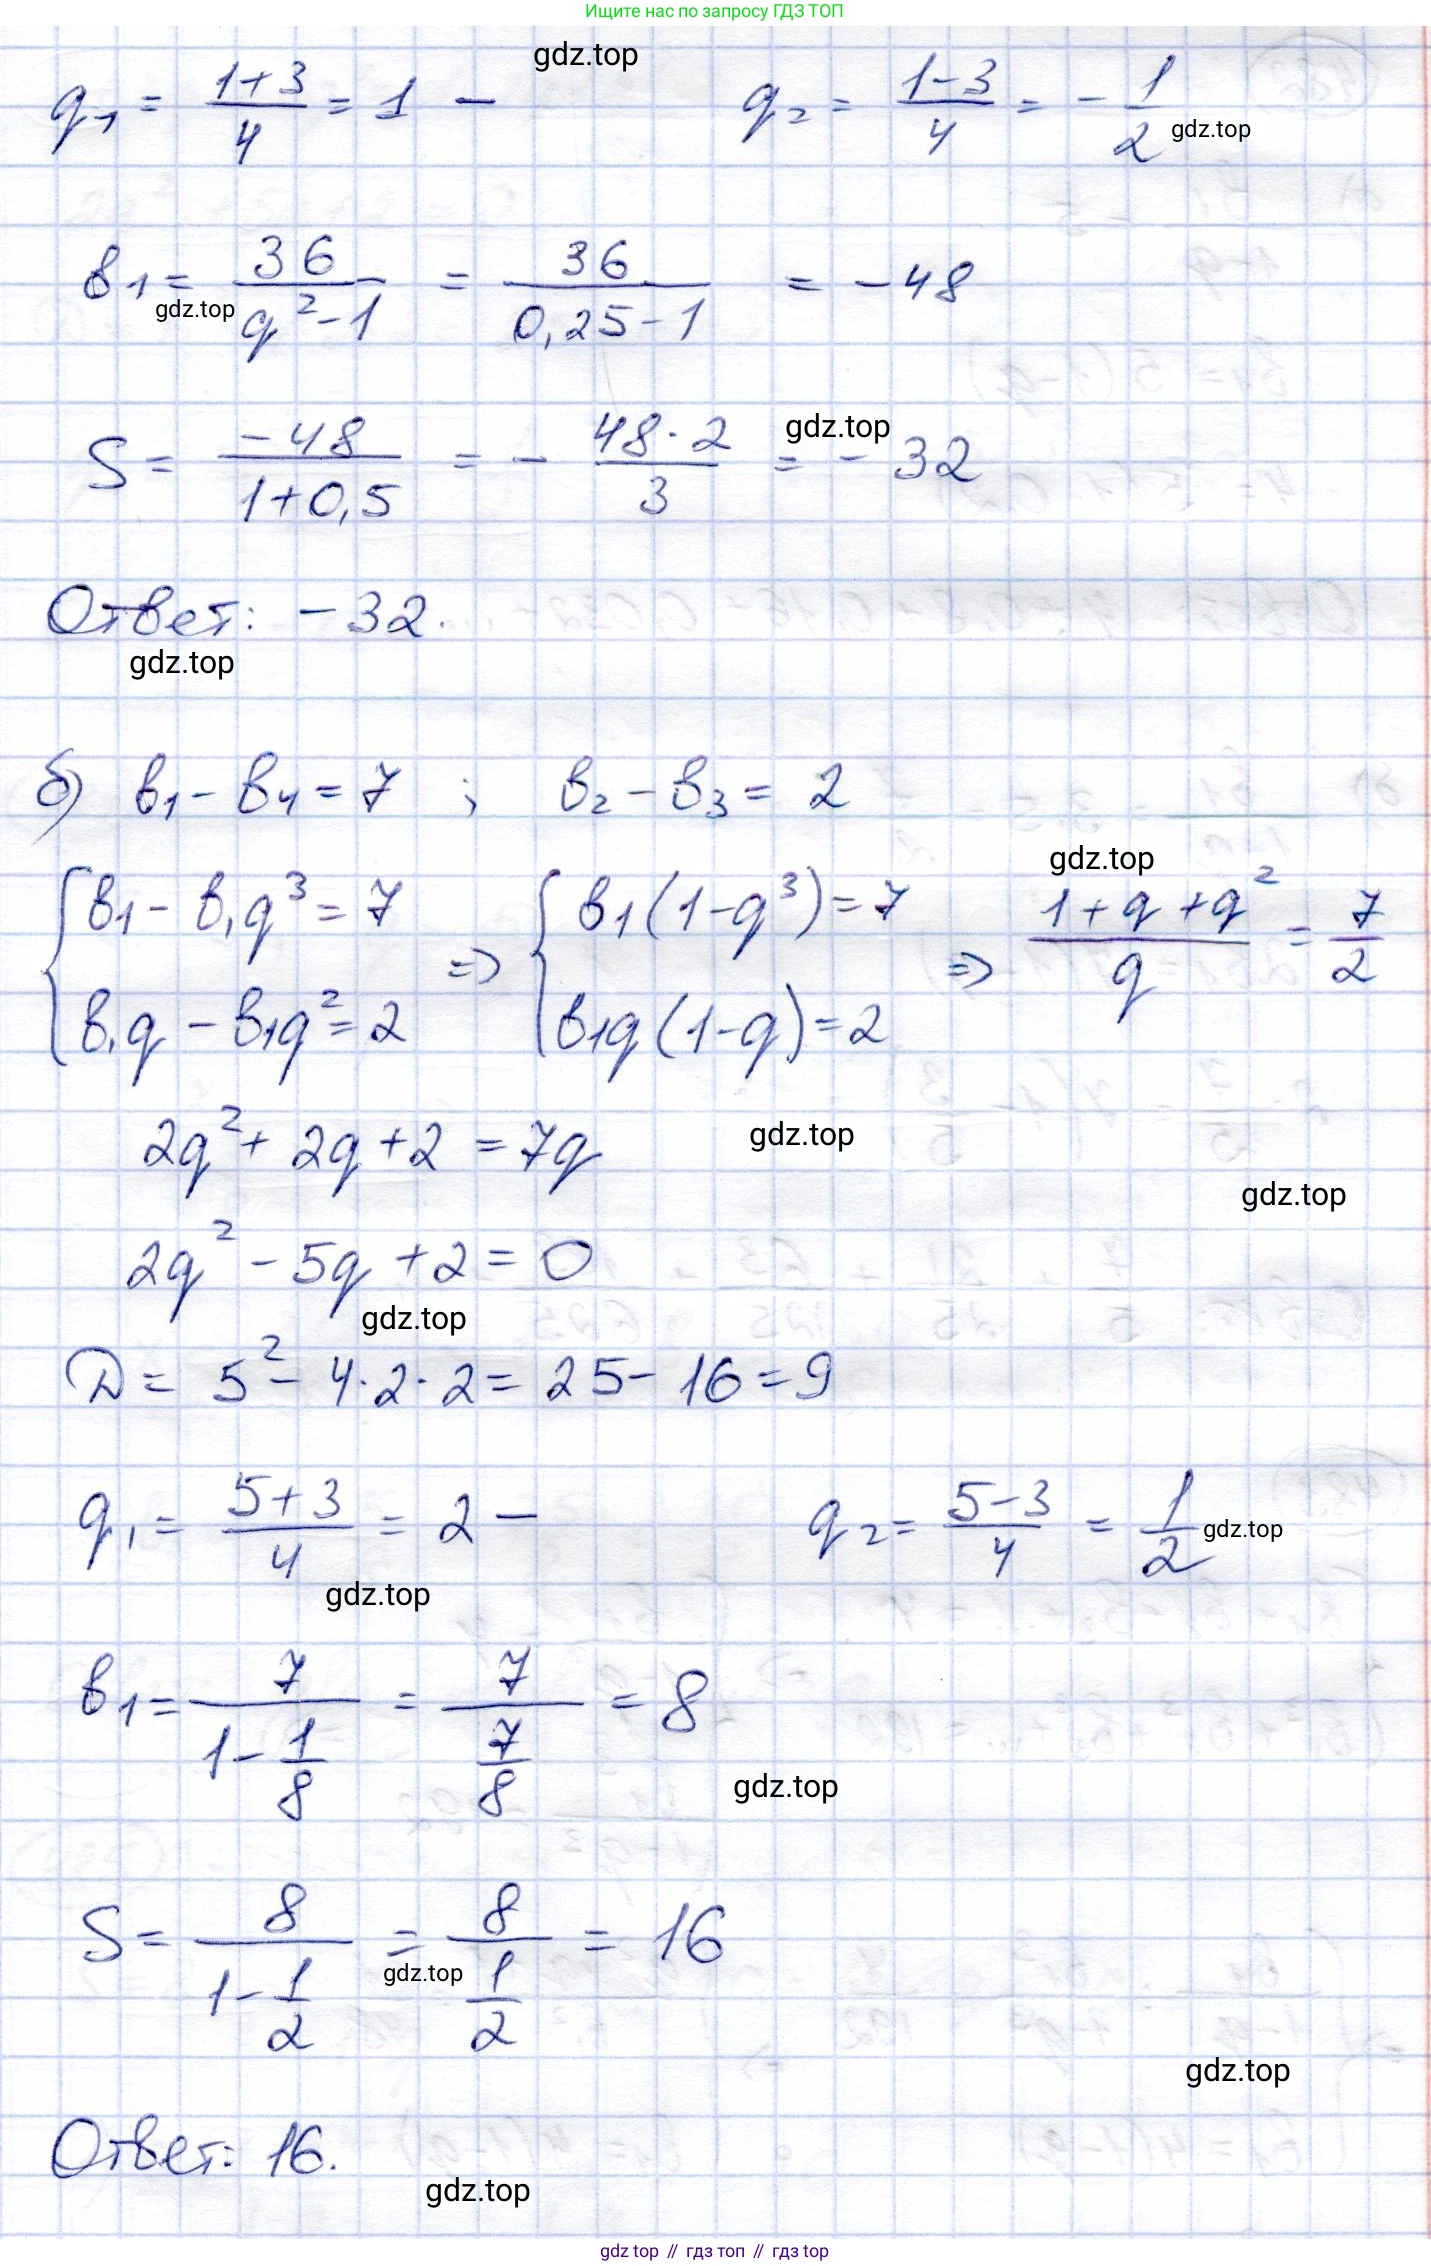 Ищите нас по запросу ГДЗ ТОП
gdz.top
q₁ = (1+3)/4 = 1 –    q₂ = (1-3)/4 = -1/2
gdz.top
в₁ = 36/(q²-1) = 36/(0,25-1) = -48
gdz.top
S = -48/(1+0,5) = - (48·2)/3 = -32
gdz.top
Ответ: -32.
gdz.top
б) в₁ - в₄ = 7 ; в₂ - в₃ = 2
gdz.top
{ в₁ - в₁q³ = 7 => { в₁(1-q³) = 7 => (1+q+q²)/q = 7/2
{ в₁q - в₁q² = 2    { в₁q(1-q) = 2
2q² + 2q + 2 = 7q
gdz.top
gdz.top
2q² - 5q + 2 = 0
gdz.top
D = 5² - 4·2·2 = 25 - 16 = 9
q₁ = (5+3)/4 = 2 –    q₂ = (5-3)/4 = 1/2
gdz.top
gdz.top
в₁ = 7/(1-1/8) = 7/(7/8) = 8
gdz.top
S = 8/(1-1/2) = 8/(1/2) = 16
gdz.top
gdz.top
Ответ: 16.
gdz.top
gdz top // гдз топ // gdz top